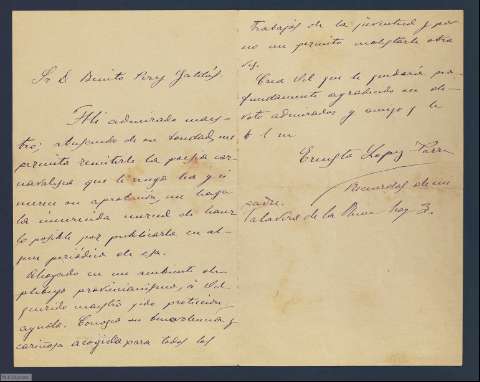 Sr D. Benito Perez Galdós
Mi admirado maes-
tro; abusando de su bondad, me
permito remitirle la poesia car-
navalesca que le ruego lea y si
merece su aprobacion, me haga
la inmerecida merced de hacer
lo posible por publicarla en al-
gun periódico de esa.
Ahogado en un ambiente de
plebeyo provincianismo, á Vd.
querido maestro pido proteccion
ayuda. Conozco su benevolencia y
cariñosa acogida para todos los
trabajos de la juventud y por
eso me permito molestarle otra
vez.
Crea Vd que le quedaria pro-
fundamente agradecido su de-
voto admirador y amigo q le
b l m
Ernesto Lopez Parra
Recuerdos de mi
padre.
Talavera de la Reina hoy 3.